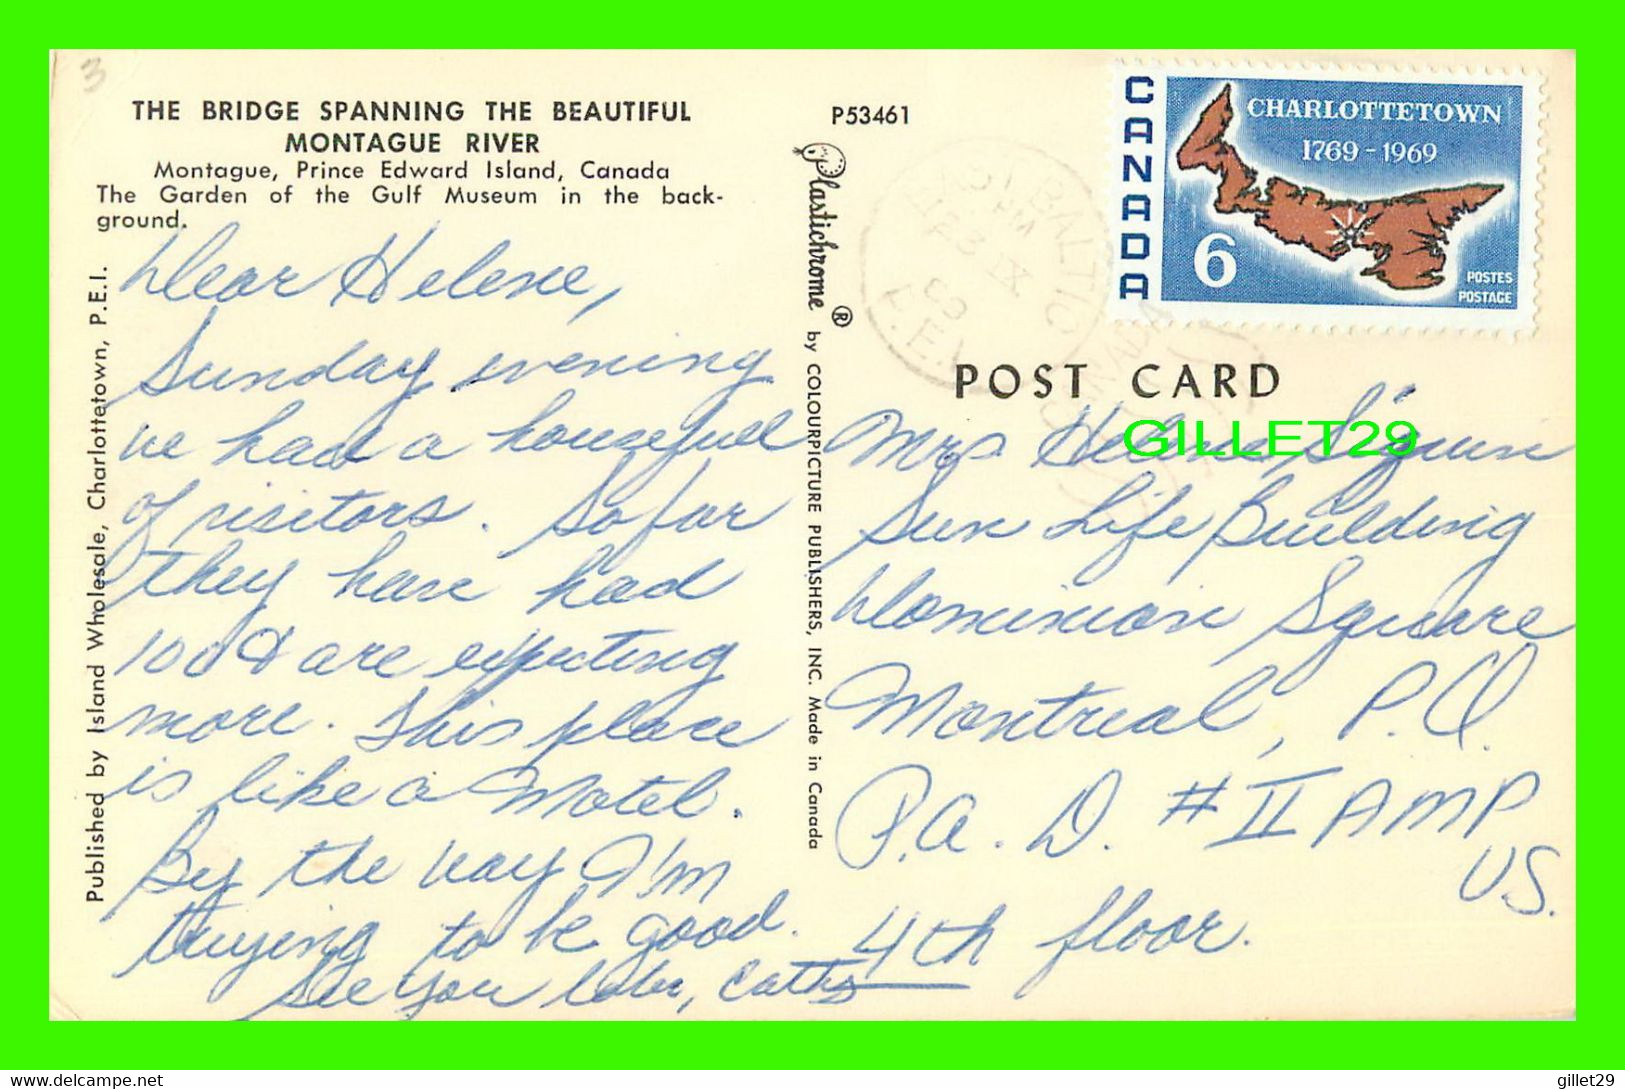 3
THE BRIDGE SPANNING THE BEAUTIFUL
MONTAGUE RIVER
Montague, Prince Edward Island, Canada
The Garden of the Gulf Museum in the back-
ground.
Dear Helene,
Sunday evening
we had a housefull
of visitors. So far
they have had
100 & are expecting
more. This place
is like a Motel.
By the way I'm
trying to be good.
See you later, Cathy
Published by Island Wholesale, Charlottetown, P.E.I.
P53461
Plastichrome ® by COLOURPICTURE PUBLISHERS, INC. Made in Canada
CANADA
CHARLOTTETOWN
1769-1969
6
POSTES
POSTAGE
BALTIC
POST CARD
GILLET29
Mrs. Helene Siguin
Sun Life Building
Dominion Square
Montreal, P.Q.
P.A.D. # II AMP
U.S.
4th floor.
delcampe.net
gillet29